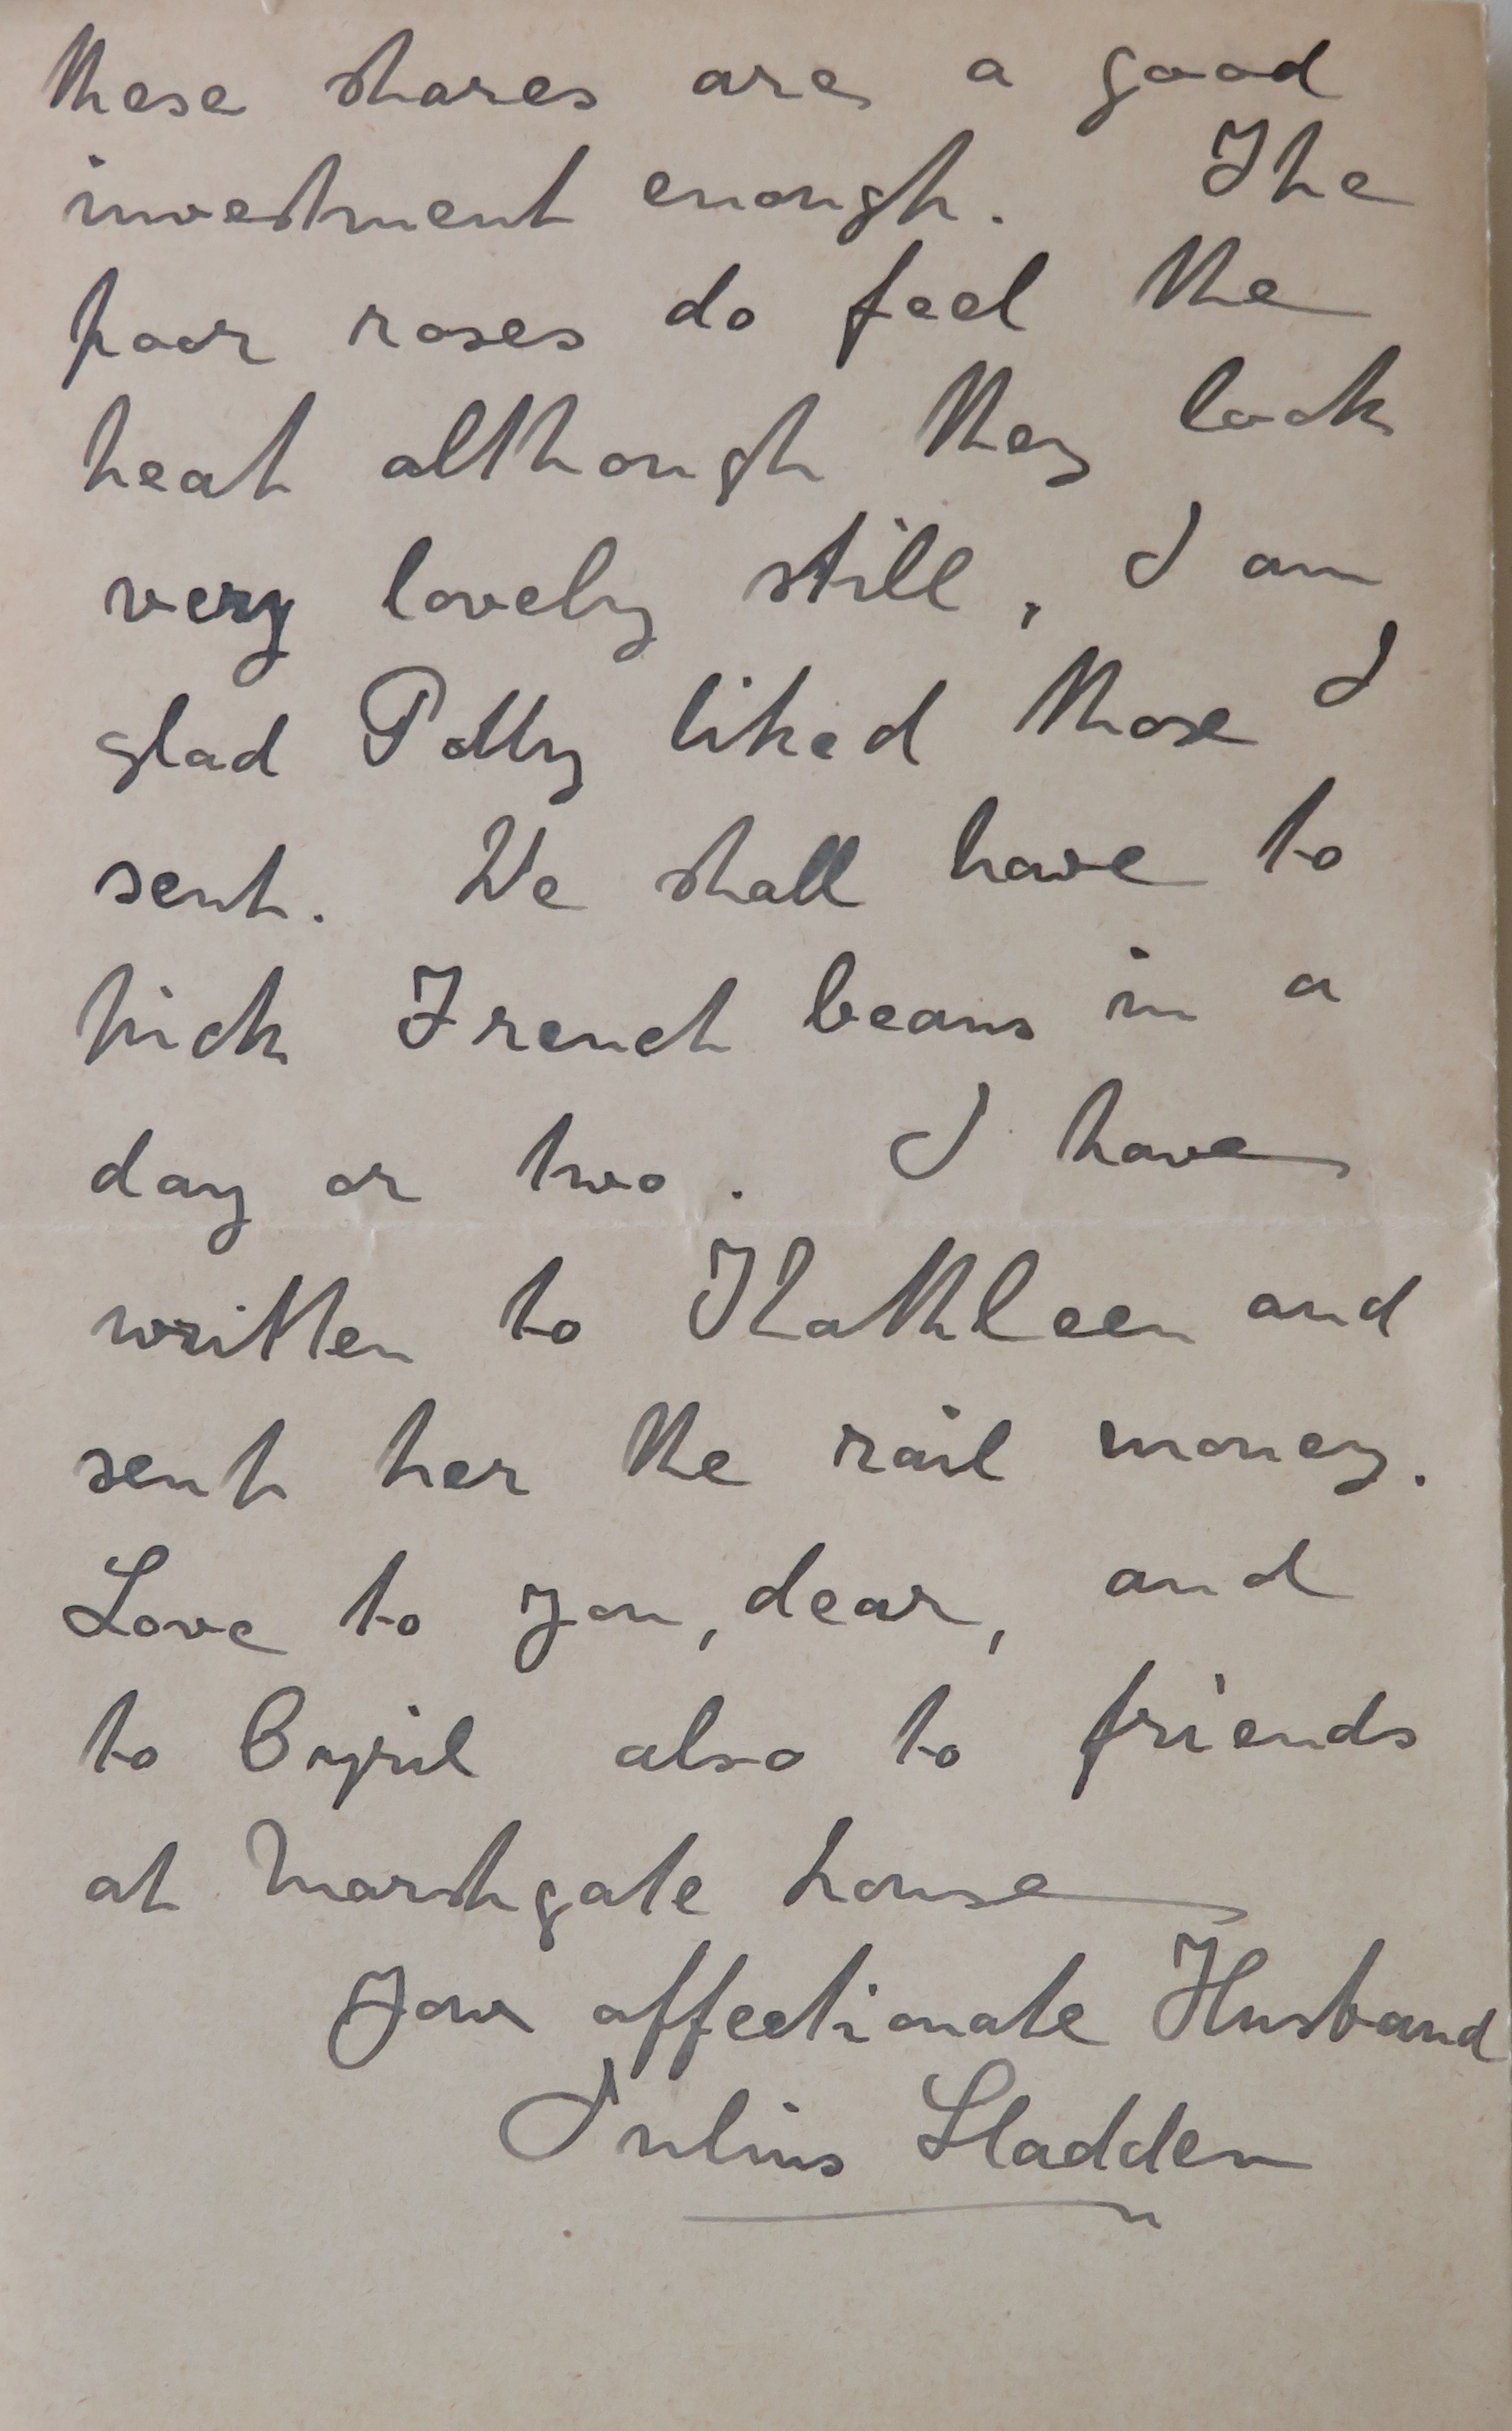 these shares are a good
investment enough. The
poor roses do feel the
heat although they look
very lovely still, I am
glad Polly liked those I
sent. We shall have to
pick French beans in a
day or two. I have
written to Kathleen and
sent her the rail money.
Love to you, dear, and
to Cyril also to friends
at Marshgate house
Your affectionate Husband
Julius Sladden